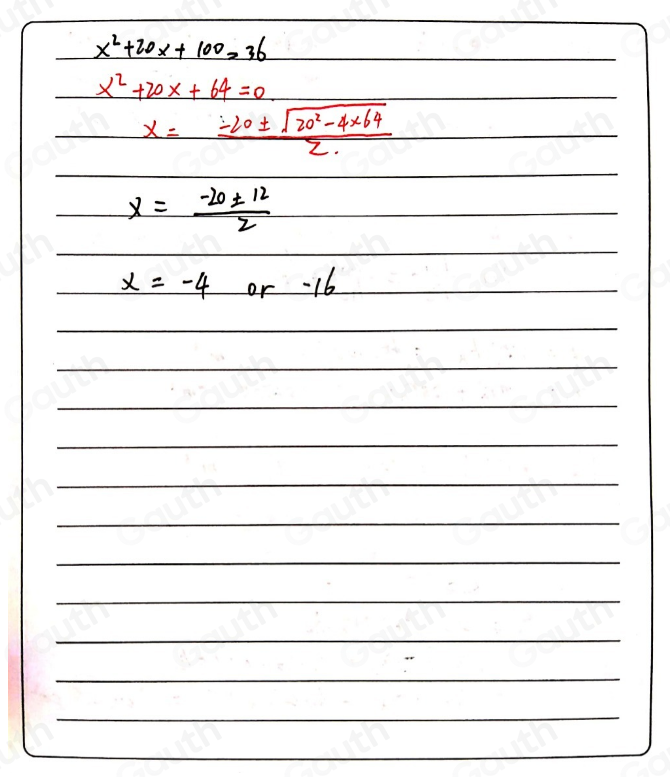 x²+20x+100=36
x²+20x+64=0
x = (-20±√(20²-4×64))/2.
x = (-20±12)/2
x = -4 or -16